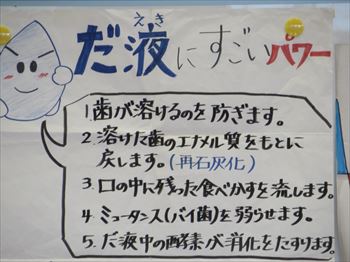 えき
だ液にすごいパワー
1.歯が溶けるのを防ぎます。
2.溶けた歯のエナメル質をもとに
戻します。(再石灰化)
3.口の中に残った食べかすを流します。
4.ミュータンス(バイ菌)を弱らせます。
5.だ液中の酵素が消化をたすけます。